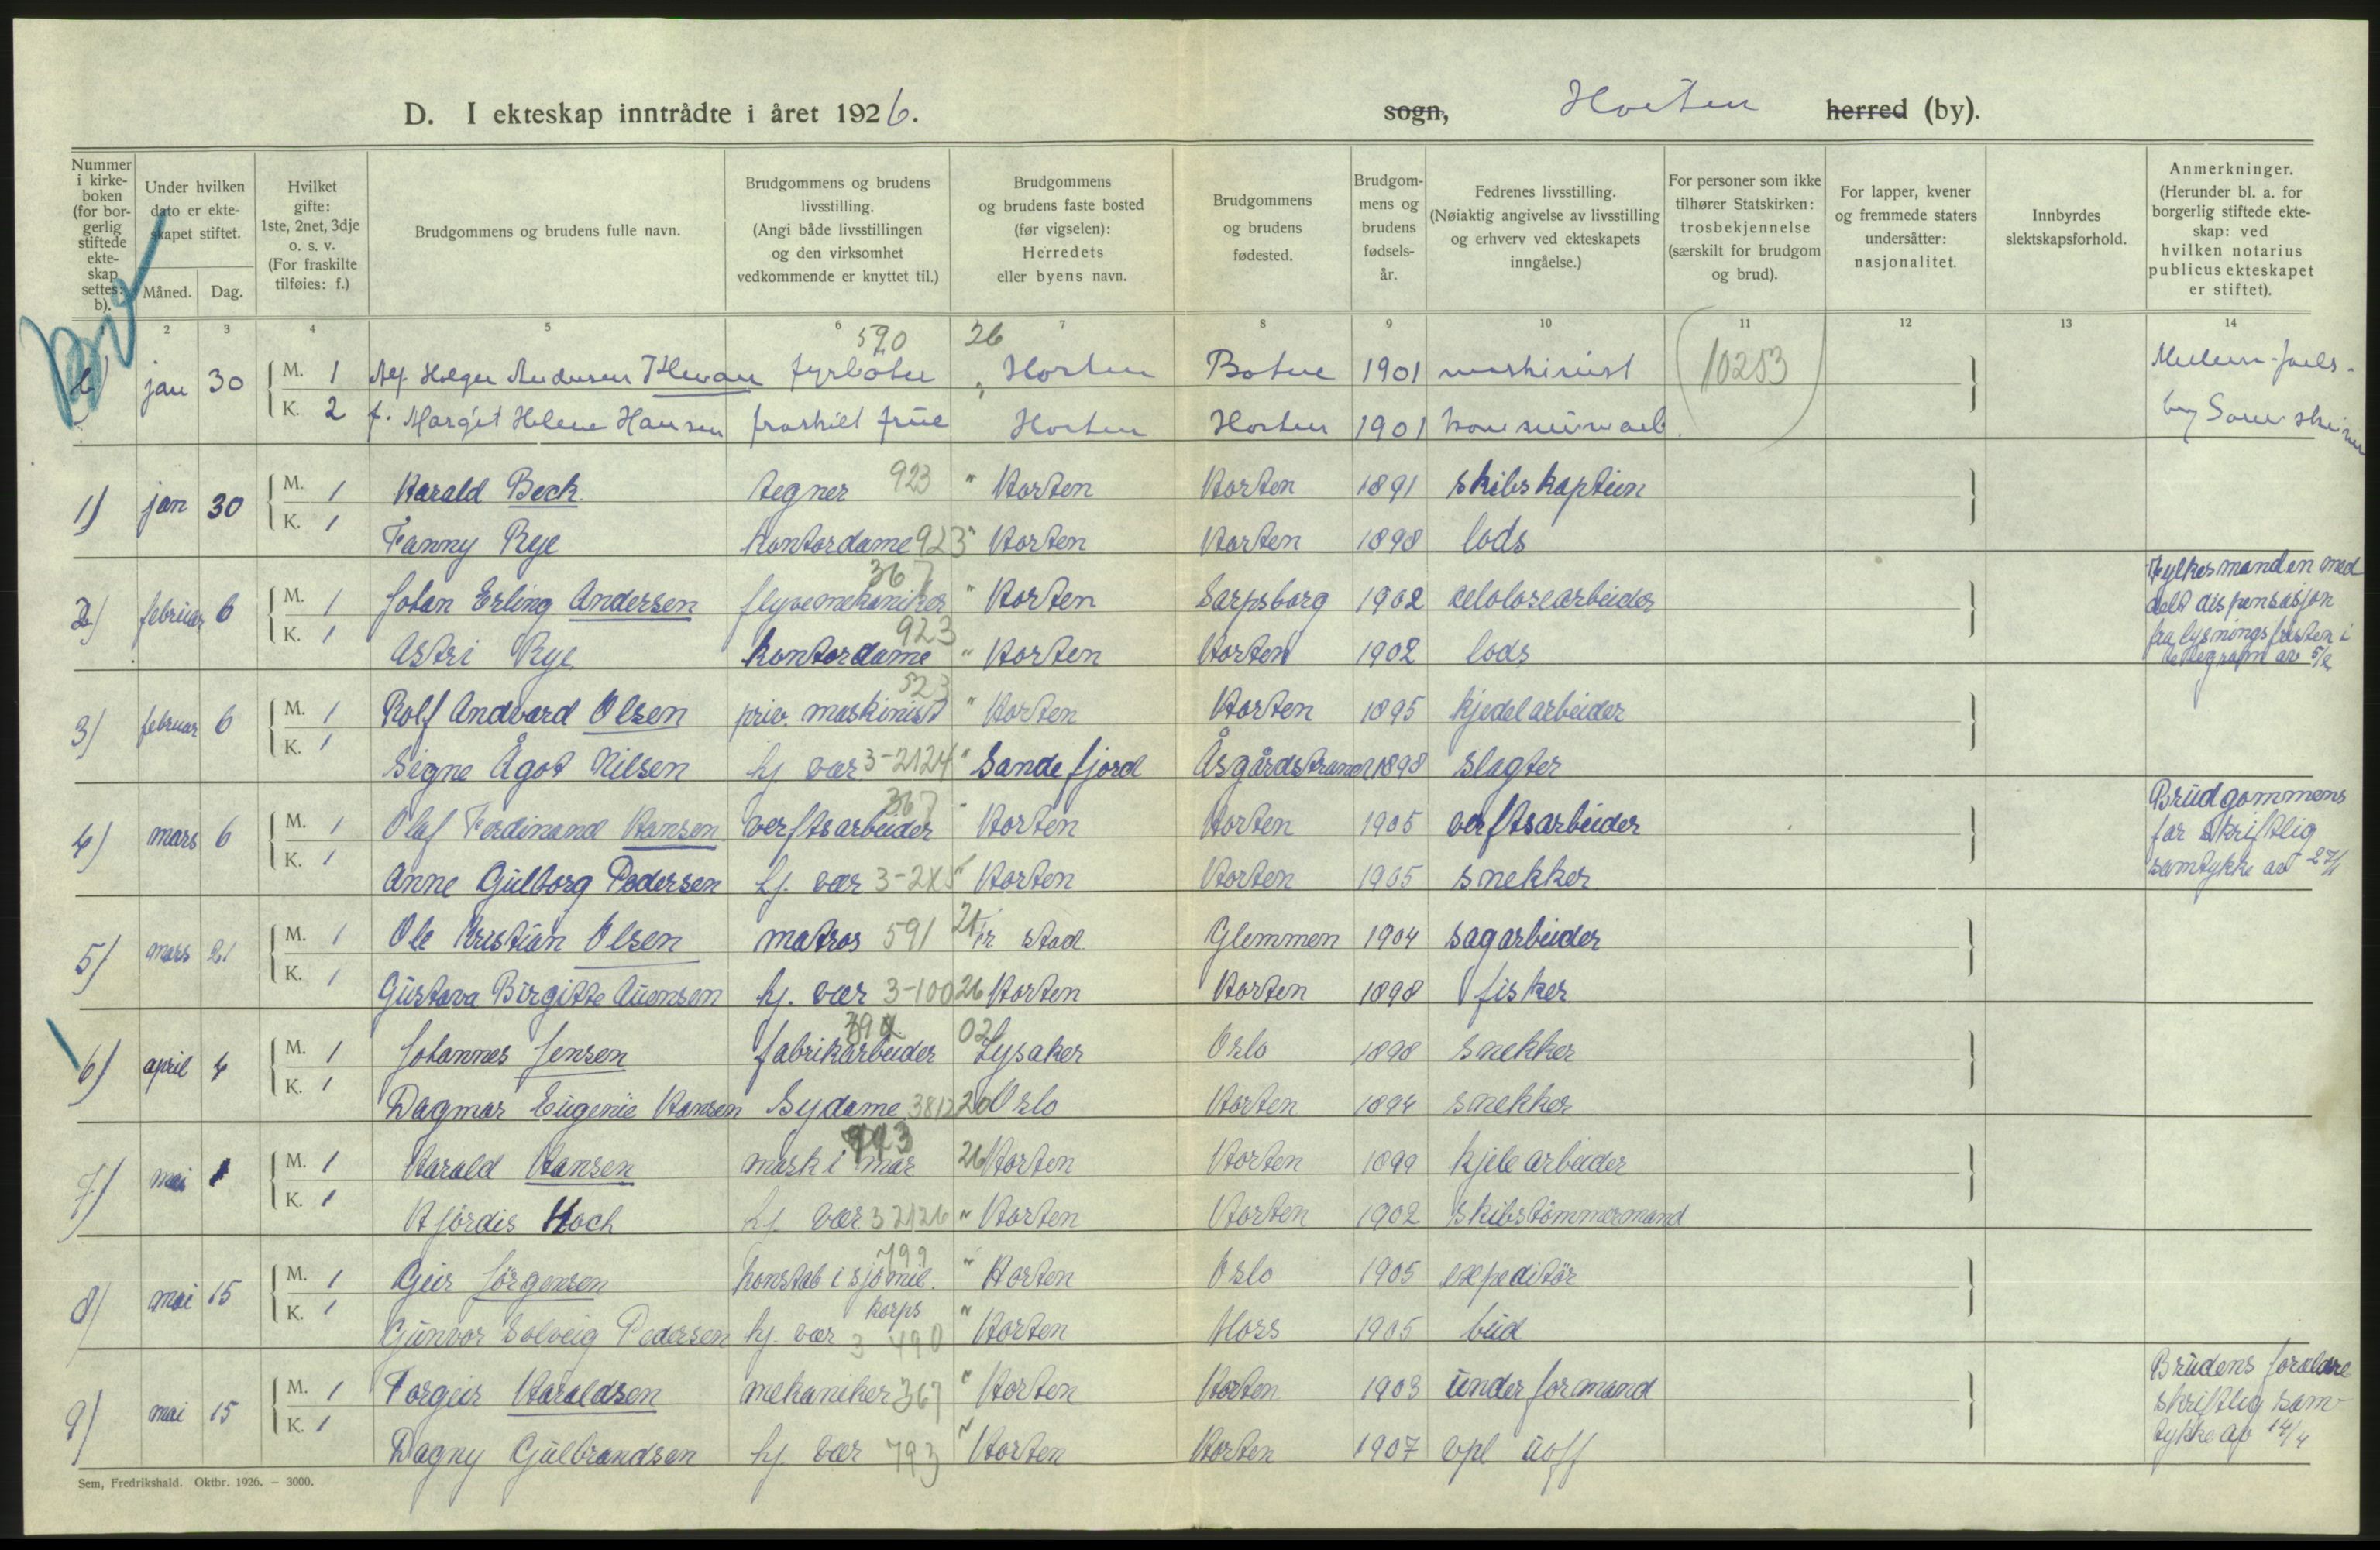 D. I ekteskap inntrådte i året 1926.
sogn, Horten herred (by).
Nummer i kirkeboken (for borgerlig stiftede ekteskap settes: b).
Under hvilken dato er ekteskapet stiftet.
Måned. Dag.
Hvilket gifte: 1ste, 2net, 3dje o. s. v. (For fraskilte tilføies: f.)
Brudgommens og brudens fulle navn.
Brudgommens og brudens livsstilling. (Angi både livsstillingen og den virksomhet vedkommende er knyttet til.)
Brudgommens og brudens faste bosted (før vigselen): Herredets eller byens navn.
Brudgommens og brudens fødested.
Brudgommens og brudens fødselsår.
Fedrenes livsstilling. (Nøiaktig angivelse av livsstilling og erhverv ved ekteskapets inngåelse.)
For personer som ikke tilhører Statskirken: trosbekjennelse (særskilt for brudgom og brud).
For lapper, kvener og fremmede staters undersåtter: nasjonalitet.
Innbyrdes slektskapsforhold.
Anmerkninger. (Herunder bl. a. for borgerlig stiftede ekteskap: ved hvilken notarius publicus ekteskapet er stiftet).
2 3 4 5 6 7 8 9 10 11 12 13 14
590 26
jan 30 M. 1 Alf Holger Andersen fyrbøter Horten Botne 1901 maskinist 10253
K. 2 f. Margit Helene Hansen fraskilt frue Horten Horten 1901
1) jan 30 M. 1 Harald Beck tegner 923 " Horten Horten 1891 skibskaptein
K. 1 Fanny Rye kontordame 923 " Horten Horten 1898 lods
367
2) februar 6 M. 1 Johan Erling Andersen flyvemekaniker " Horten Sarpsborg 1902 celolosearbeider
923
K. 1 Astri Rye kontordame " Horten Horten 1902 lods
Fylkesmanden med
delt dispensasjon
fra lysningsfristen i
telegram av 5/2
523
3) februar 6 M. 1 Rolf Andvard Olsen priv. maskinist " Horten Horten 1895 kjedelarbeider
K. 1 Signe Ågot Nilsen hj. vær 3-2124 " Sandefjord Åsgårdstrand 1898 slagter
367
4) mars 6 M. 1 Olaf Ferdinand Hansen verftsarbeider " Horten Horten 1905 verftsarbeider
K. 1 Anne Gulborg Pedersen hj. vær Horten Horten 1905 snekker
Brudgommens
far skriftlig
samtykke av 27/1
5) mars 21 M. 1 Ole Kristian Olsen matros 591 stad Glemmen 1904 sagarbeider
K. 1 Gustava Birgitte Auensen hj. vær 3-100 26 Horten Horten 1898 fisker
02
6) april 4 M. 1 Johannes Jensen fabrikarbeider Lysaker Oslo 1898 snekker
K. 1 Dagmar Eugenie Hansen Sydame 3812 20 Oslo Horten 1894 snekker
7) mai 1 M. 1 Harald Hansen mask i mar 26 Horten Horten 1899 kjelearbeider
K. 1 Hjördis Hoch hj. vær 32126 " Horten Horten 1902 skibstömmermand
799
8) mai 15 M. 1 Geir Jörgensen konstab i sjömil. " Horten Oslo 1905 expeditör
korps
K. 1 Gunvor Solveig Pedersen hj. vær 3 490 " Horten Moss 1905 bud
9) mai 15 M. 1 Torgeir Haraldsen mekaniker 367 " Horten Horten 1903 underformand
K. 1 Dagny Gulbrandsen hj. vær 793 " Horten Horten 1907 vpl uoff
Brudens foreldre
skriftlig sam-
tykke av 14/4
Sem, Fredrikshald. Oktbr. 1926. — 3000.